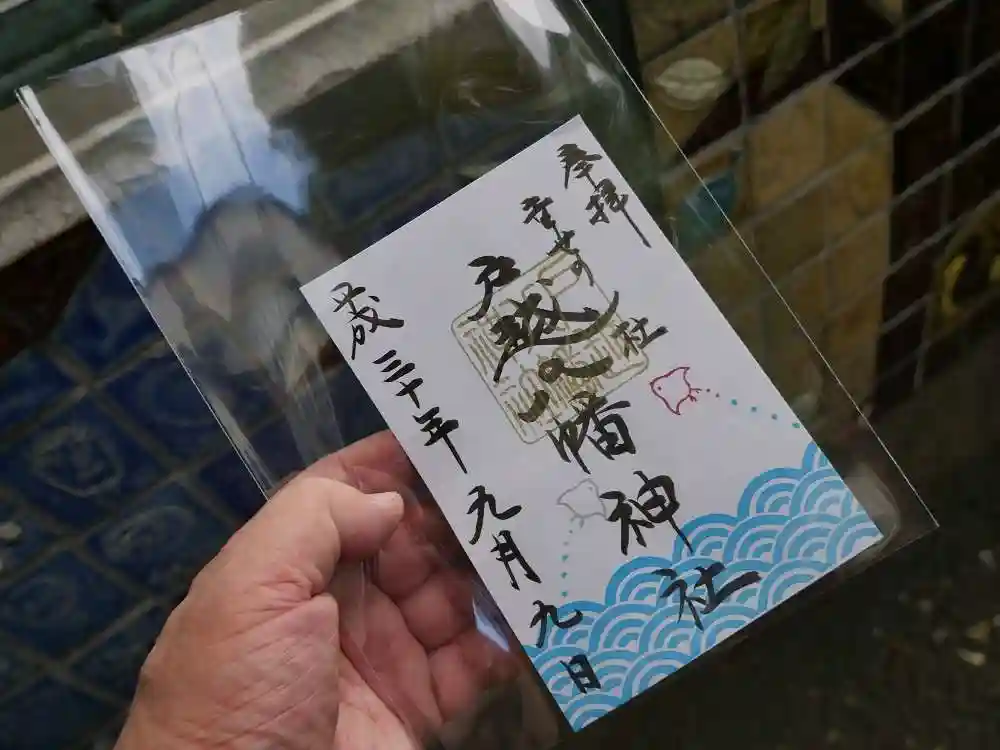 奉拝
幸せの社
戸越八幡神社
平成三十年九月九日